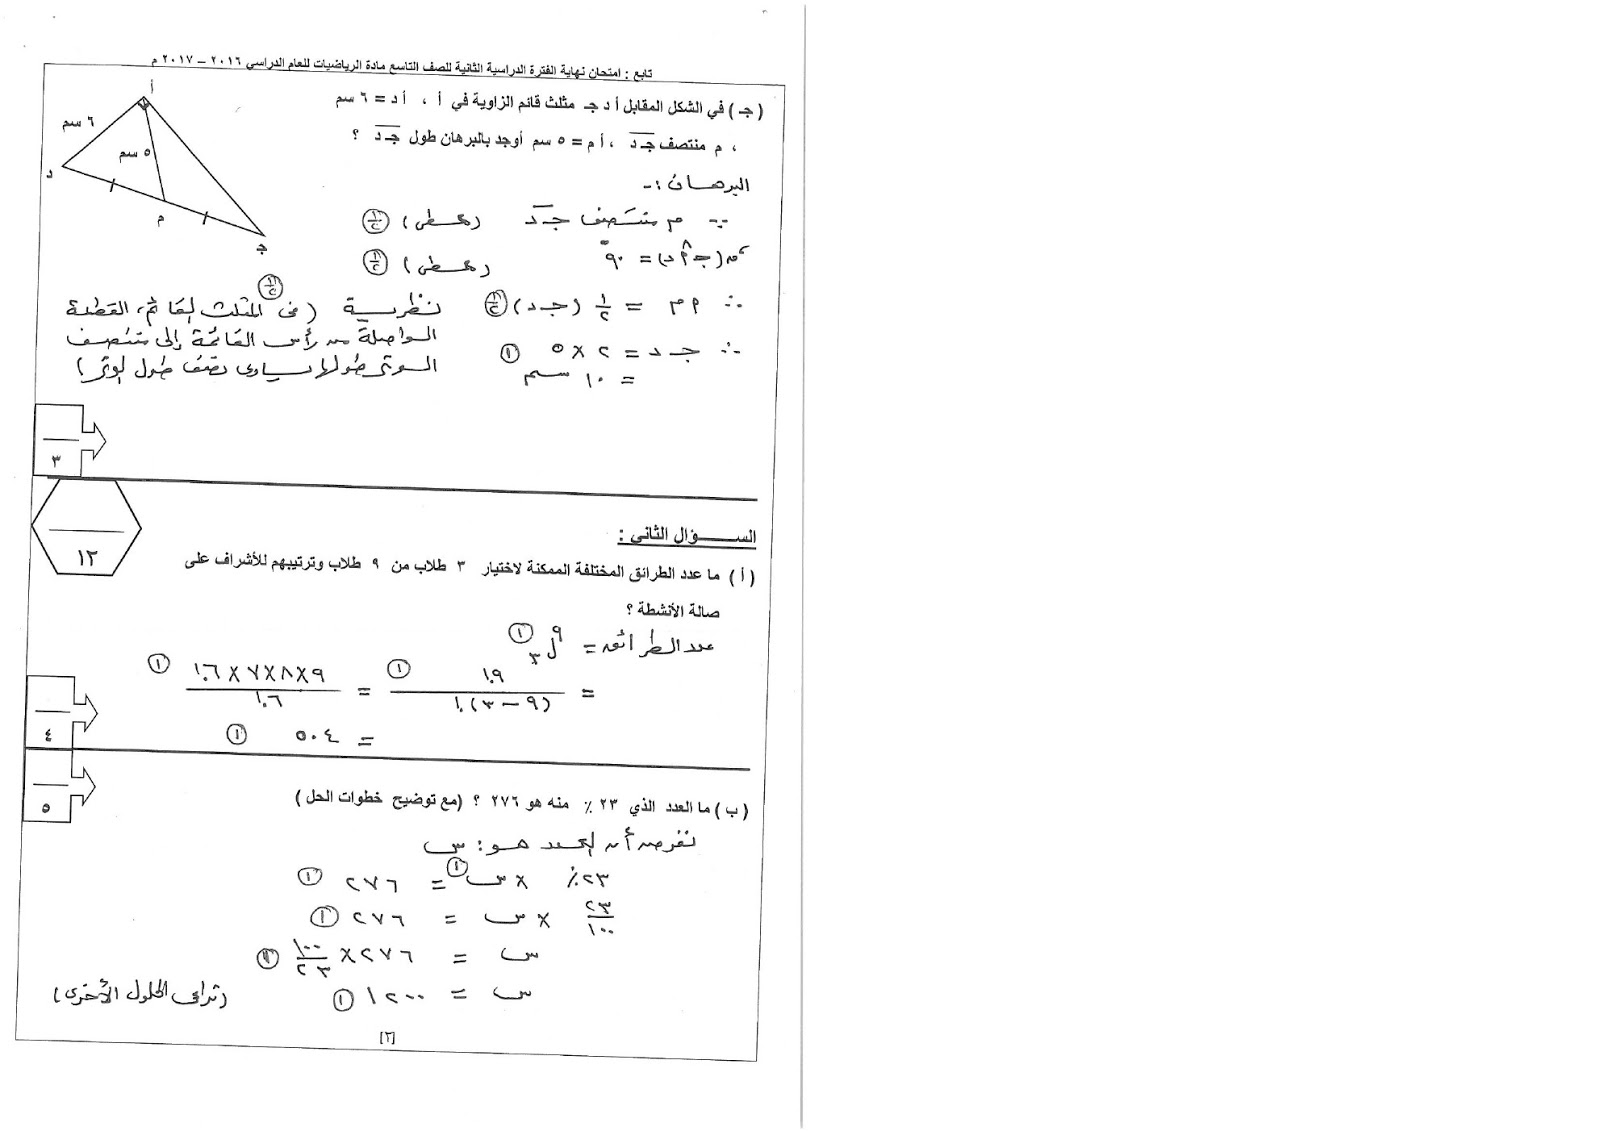 تابع : امتحان نهاية الفترة الدراسية الثانية للصف التاسع مادة الرياضيات للعام الدراسي ٢٠١٦ – ٢٠١٧ م
( جـ ) في الشكل المقابل أ د جـ مثلث قائم الزاوية في أ ، أ د = ٦ سم
، م منتصف جـ د ، أ م = ٥ سم أوجد بالبرهان طول جـ د ؟
أ
٦ سم
٥ سم
د
م
جـ
البرهان :-
∵ م منتصف جـ د (معطى) ١/٢
ق (جـ أ د) = ٩٠° (معطى) ١/٢
∴ أ م = ١/٢ (جـ د) ١/٢ نظرية (في المثلث القائم، القطعة ١/٢
الواصلة من رأس القائمة إلى منتصف
الوتر طولها يساوي نصف طول الوتر)
∴ جـ د = ٢ × ٥ ١
= ١٠ سم
٣
١٢
الســـؤال الثاني :
( أ ) ما عدد الطرائق المختلفة الممكنة لاختيار ٣ طلاب من ٩ طلاب وترتيبهم للأشراف على
صالة الأنشطة ؟
عدد الطرائق = ٩ل٣ ١
= ٩! / (٩ – ٣)! ١ = ٩×٨×٧×٦! / ٦! ١
= ٥٠٤ ١
٤
٥
( ب ) ما العدد الذي ٢٣ ٪ منه هو ٢٧٦ ؟ (مع توضيح خطوات الحل )
نفرض أن العدد هو : س
٢٣٪ × س ١ = ٢٧٦ ١
٢٣/١٠٠ × س = ٢٧٦ ١
س = ٢٧٦ × ١٠٠/٢٣ ١
س = ١٢٠٠ ١
(تراعى الحلول الأخرى)
[٢]